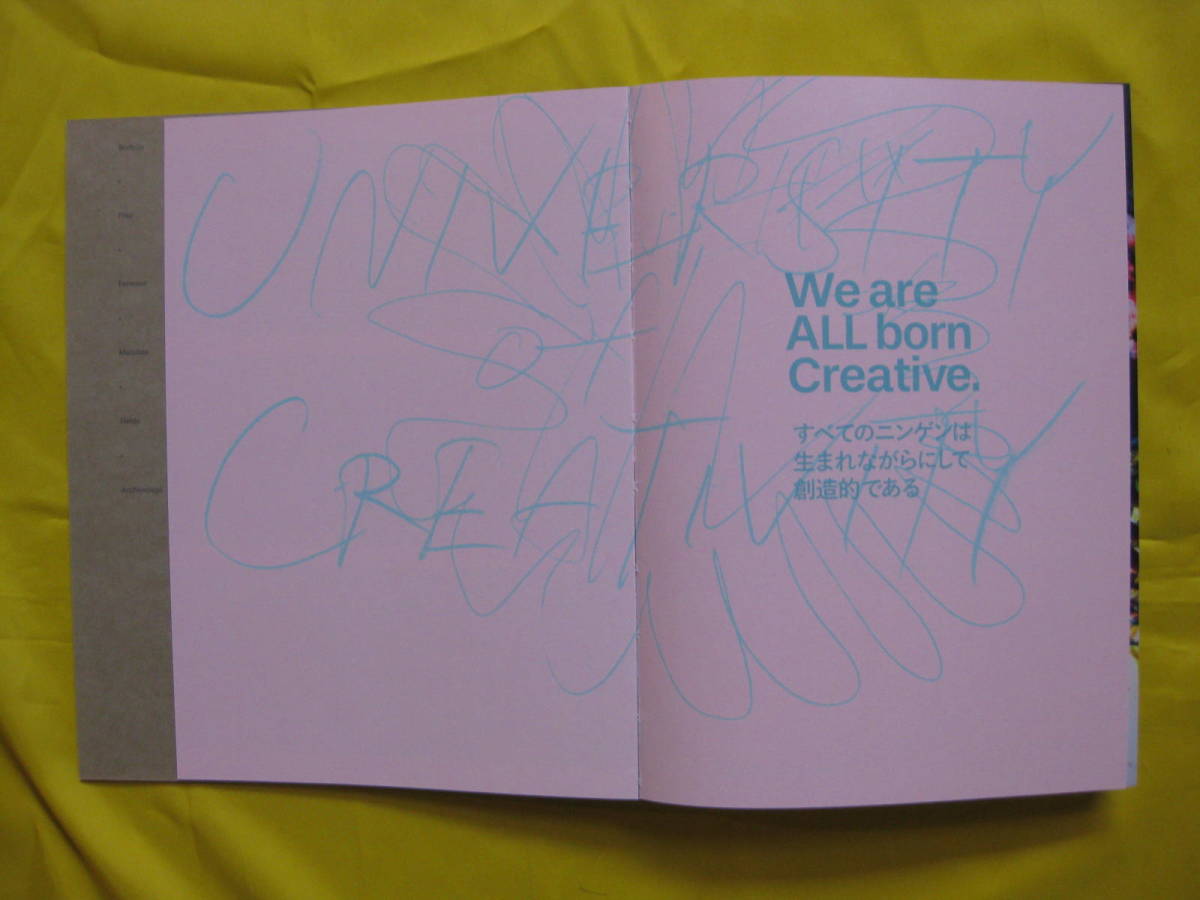 UNIVERSITY
of
CREATIVITY
We are
ALL born
Creative.
すべてのニンゲンは
生まれながらにして
創造的である